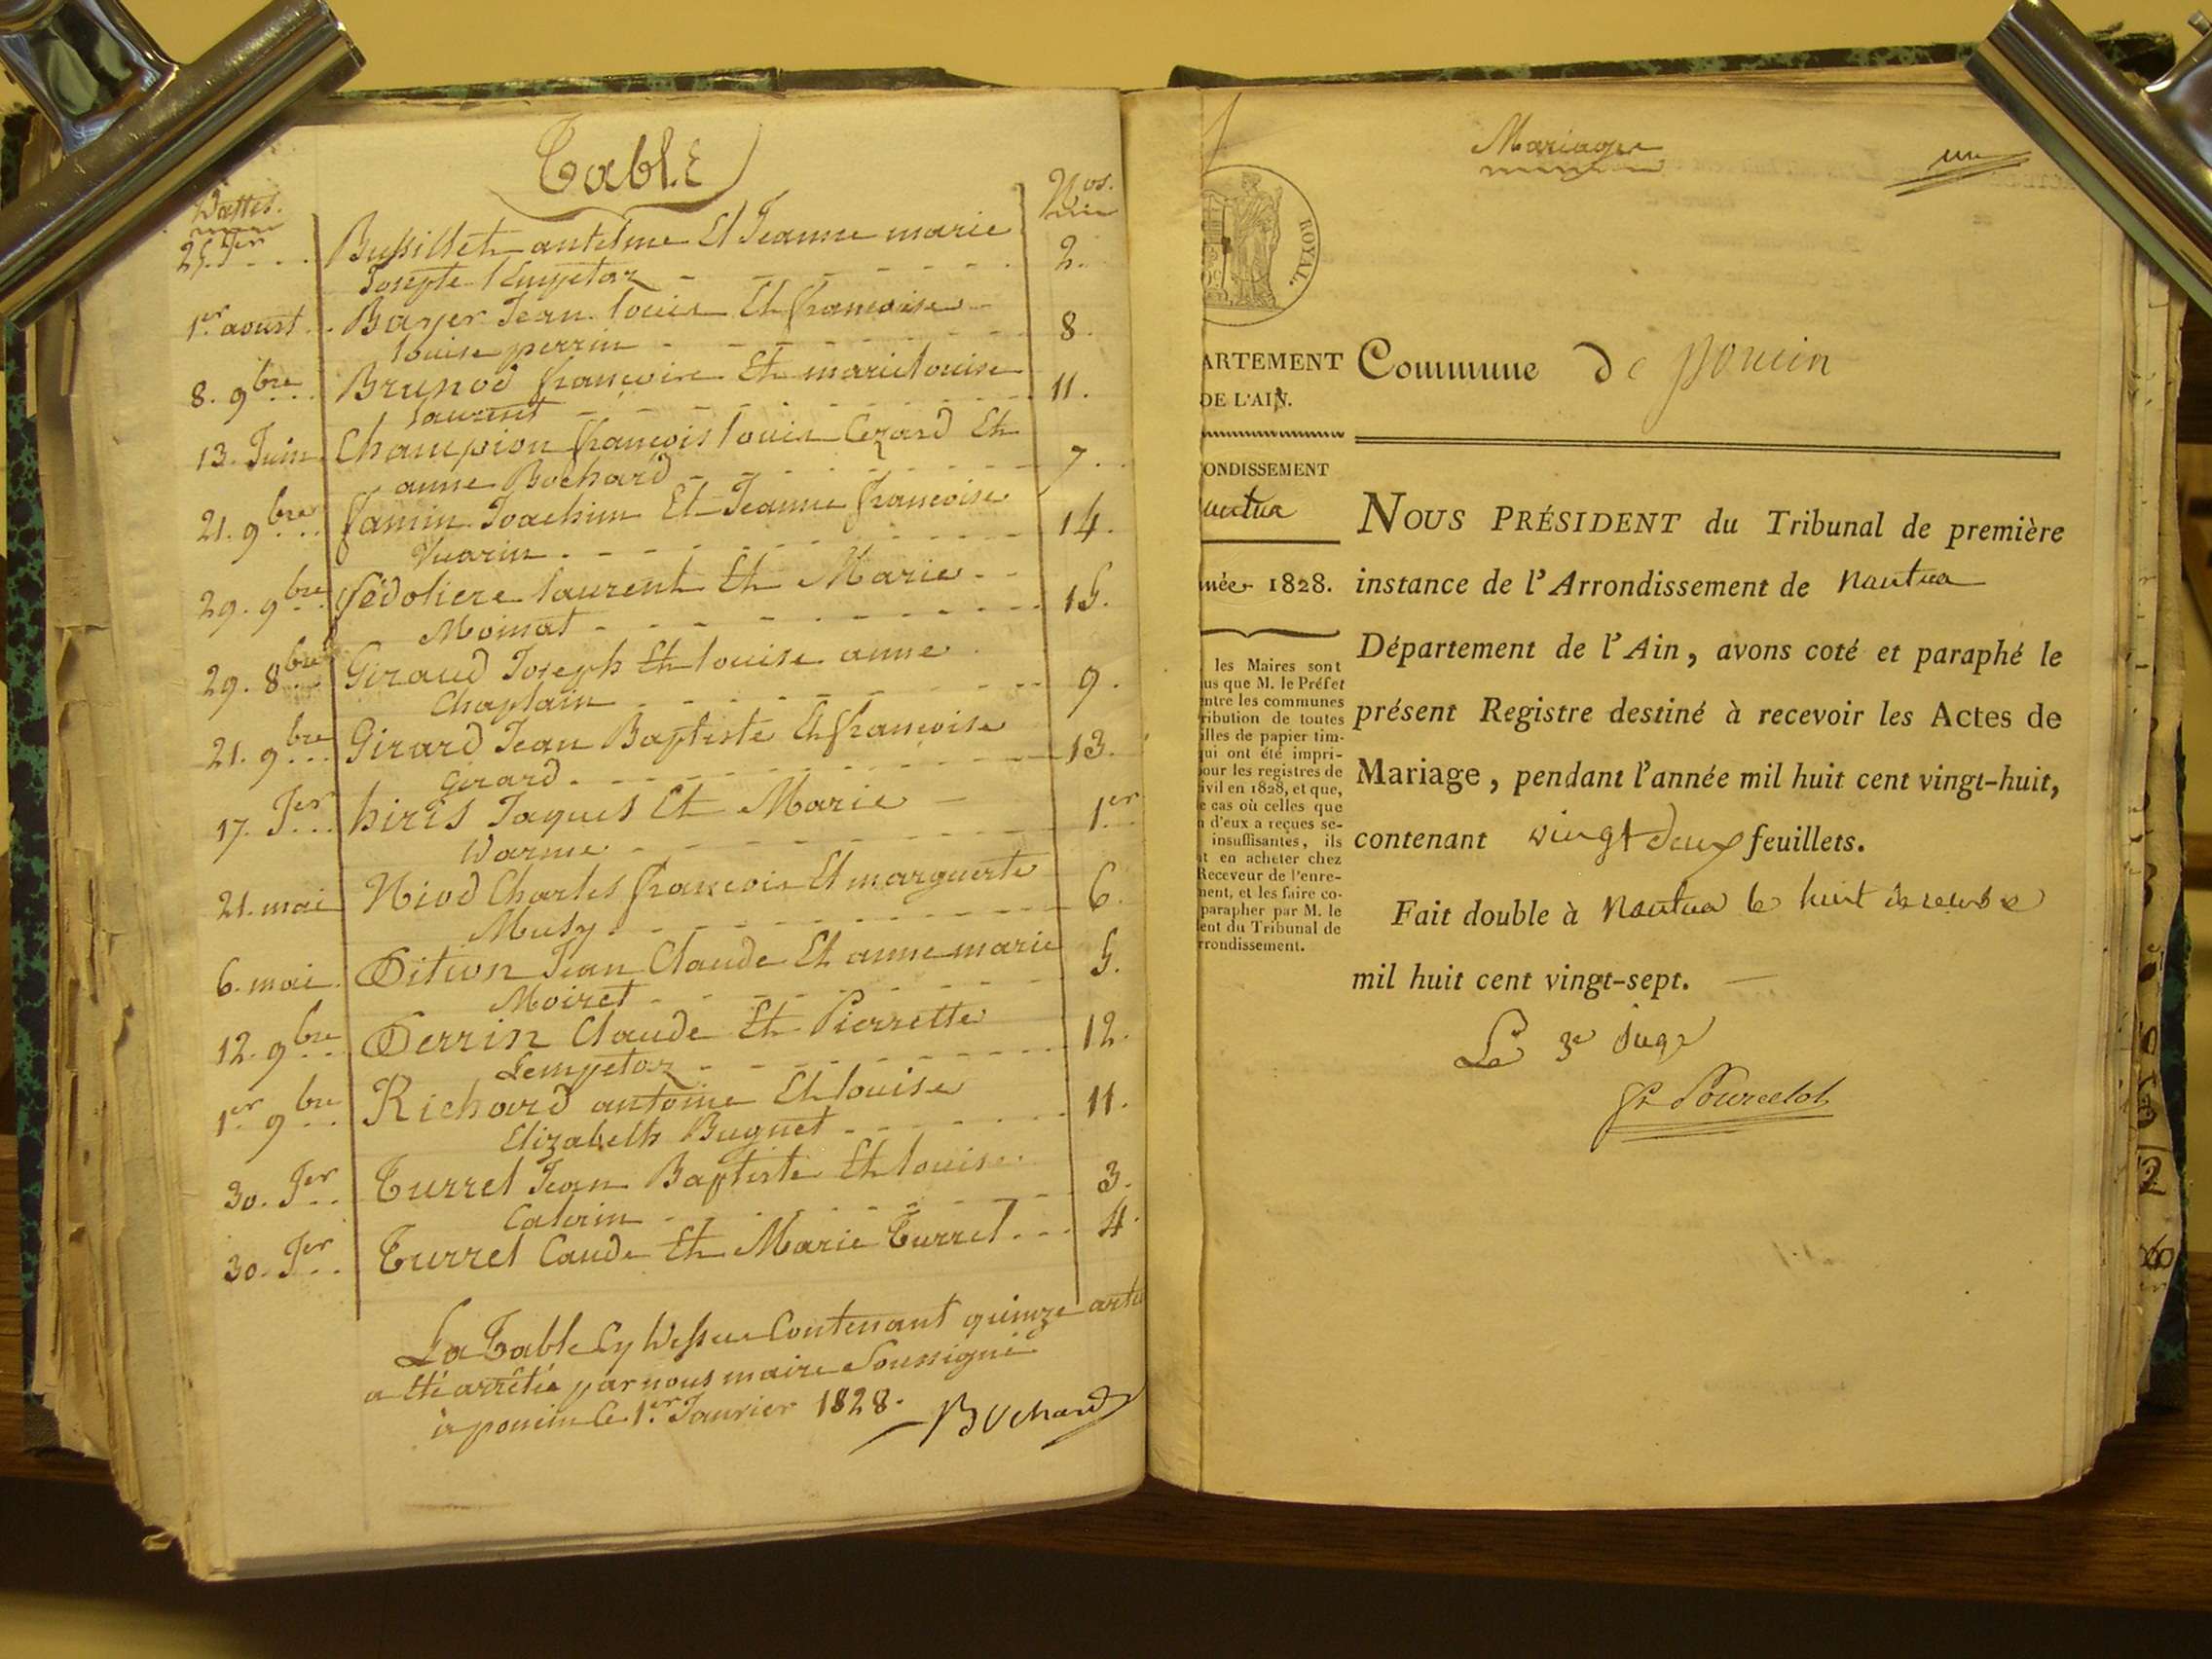 Table
Dattes. Nos.
25. Jer Bussillet antelme Et Jeanne marie
Josepte lempetaz 2.
1er aoust Bayer Jean louis Et francoise
louise perrin 8.
8. 9bre Brunod francois Et marie louise
laurent 11.
13. Juin Champion françois louis Cezard Et
anne Bochard 7.
21. 9bre famin Joachim Et Jeanne francoise
Vuarin 14.
29. 9bre fédoliere laurent Et Marie
Moinat 15.
29. 8bre Giraud Joseph Et louise anne
Chaplain 9.
21. 9bre Girard Jean Baptiste Et francoise
Girard 13.
17. Jer hiris Jaques Et Marie
Warme 1er
21. mai Niod Charles francois Et marguerite
Musy 6.
6. mai Pition Jean Claude Et anne marie
Moiret 5.
12. 9bre Perrin Claude Et Pierrette
Lempetaz 12.
1er 9bre Richard antoine Et louise
Elizabeth Buguet 11.
30. Jer Turrel Jean Baptiste Et louise
Calvin 3.
30. Jer Turrel Caude Et Marie Turrel 4.
La Table Cy Dessus Contenant quinze
a Eté arrêtée par nous maire Soussigné
à poncin le 1er Janvier 1828.
Bochard
Mariage
un
ROYAL.
ARTEMENT
DE L'AIN.
Commune de poncin
ONDISSEMENT
antua
née 1828.
les Maires sont
us que M. le Préfet
ntre les communes
ribution de toutes
illes de papier tim-
ui ont été impri-
our les registres de
ivil en 1828, et que,
e cas où celles que
n d'eux a reçues se-
insuffisantes, ils
t en acheter chez
Receveur de l'enre-
ment, et les faire co-
parapher par M. le
ent du Tribunal de
rrondissement.
NOUS PRÉSIDENT du Tribunal de première
instance de l'Arrondissement de Nantua
Département de l'Ain, avons coté et paraphé le
présent Registre destiné à recevoir les Actes de
Mariage, pendant l'année mil huit cent vingt-huit,
contenant vingt deux feuillets.
Fait double à Nantua le huit decembre
mil huit cent vingt-sept.
Le 3e Juge
Pourcelot